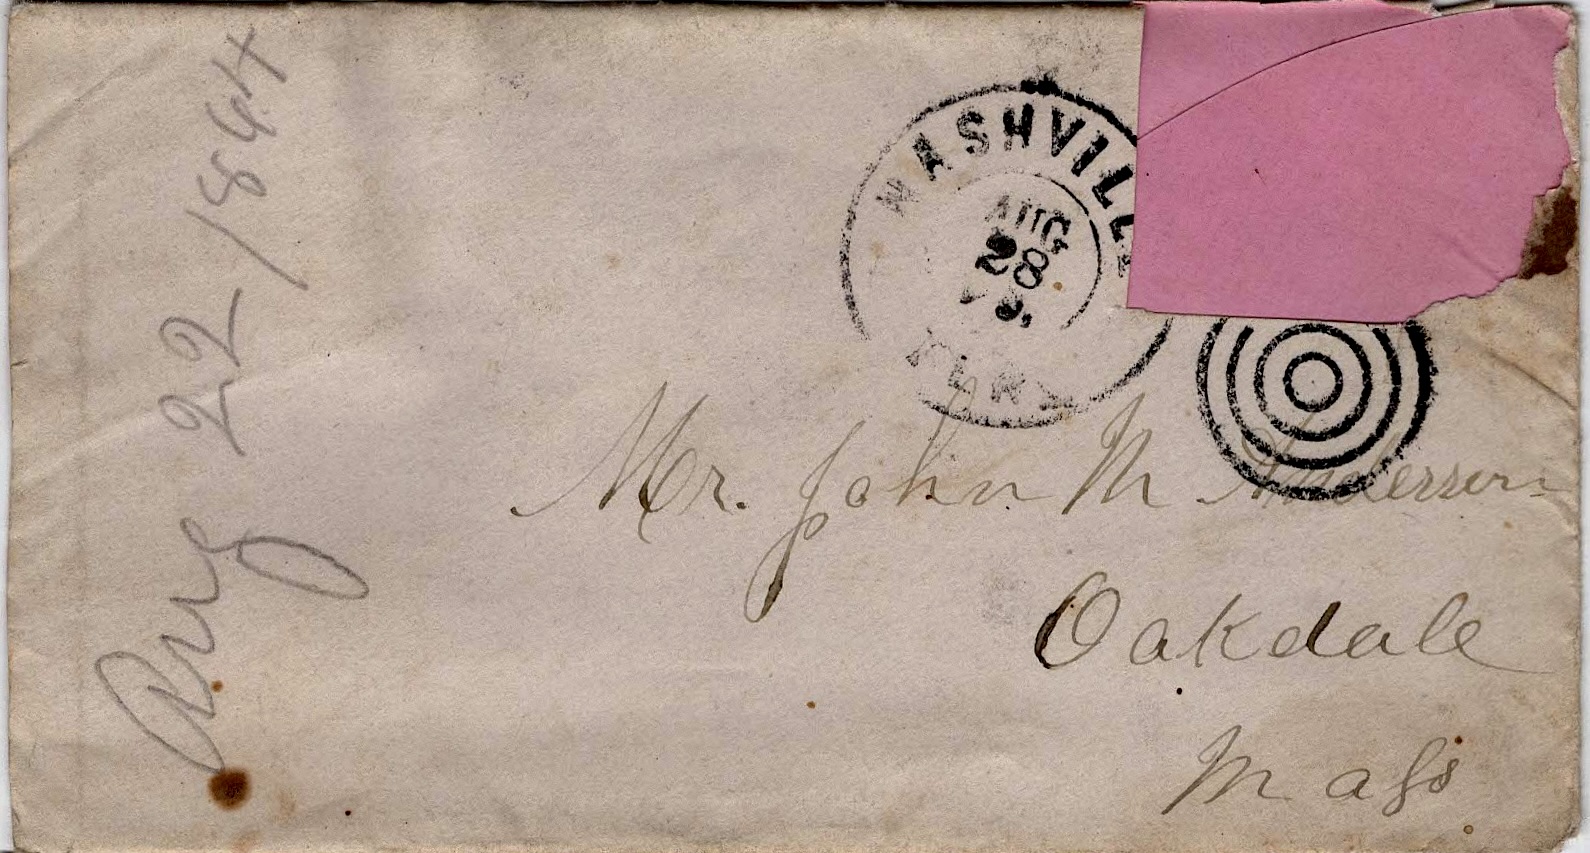 Aug 22/1864
NASHVILLE
AUG
28
Mr. John M Anderson
Oakdale
Mass